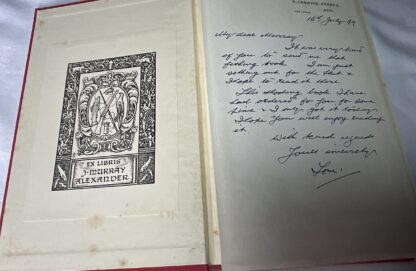 EX LIBRIS
J·MURRAY
ALEXANDER
16th July 59
My dear Murray.
It was very kind
of you to send me that
fishing book. I am just
setting out for the
I hope to read it there.
This shooting book I have
had ordered for you for some
time & only got it today.
I hope you will enjoy reading
it.
With kind regards
Yours sincerely